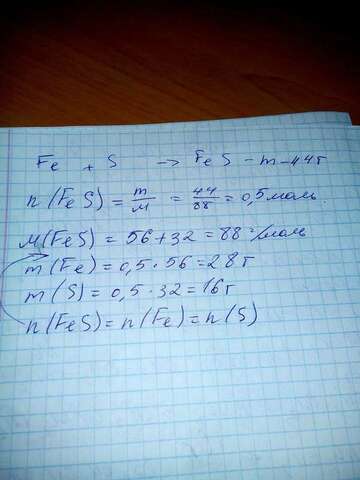 Fe + S → FeS - m - 44г
n(FeS) = m/M = 44/88 = 0,5 моль.
M(FeS) = 56 + 32 = 88 г/моль
m(Fe) = 0,5 · 56 = 28 г
m(S) = 0,5 · 32 = 16 г
n(FeS) = n(Fe) = n(S)